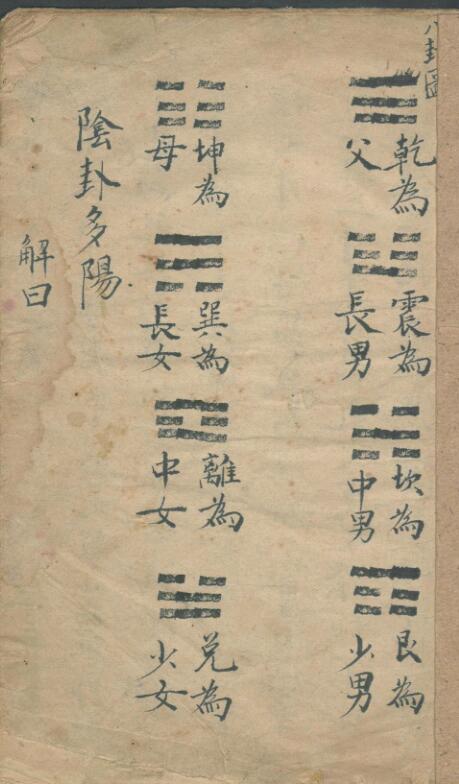 八卦圖
乾為父
震為長男
坎為中男
艮為少男
坤為母
巽為長女
離為中女
兌為少女
陰卦多陽
解曰